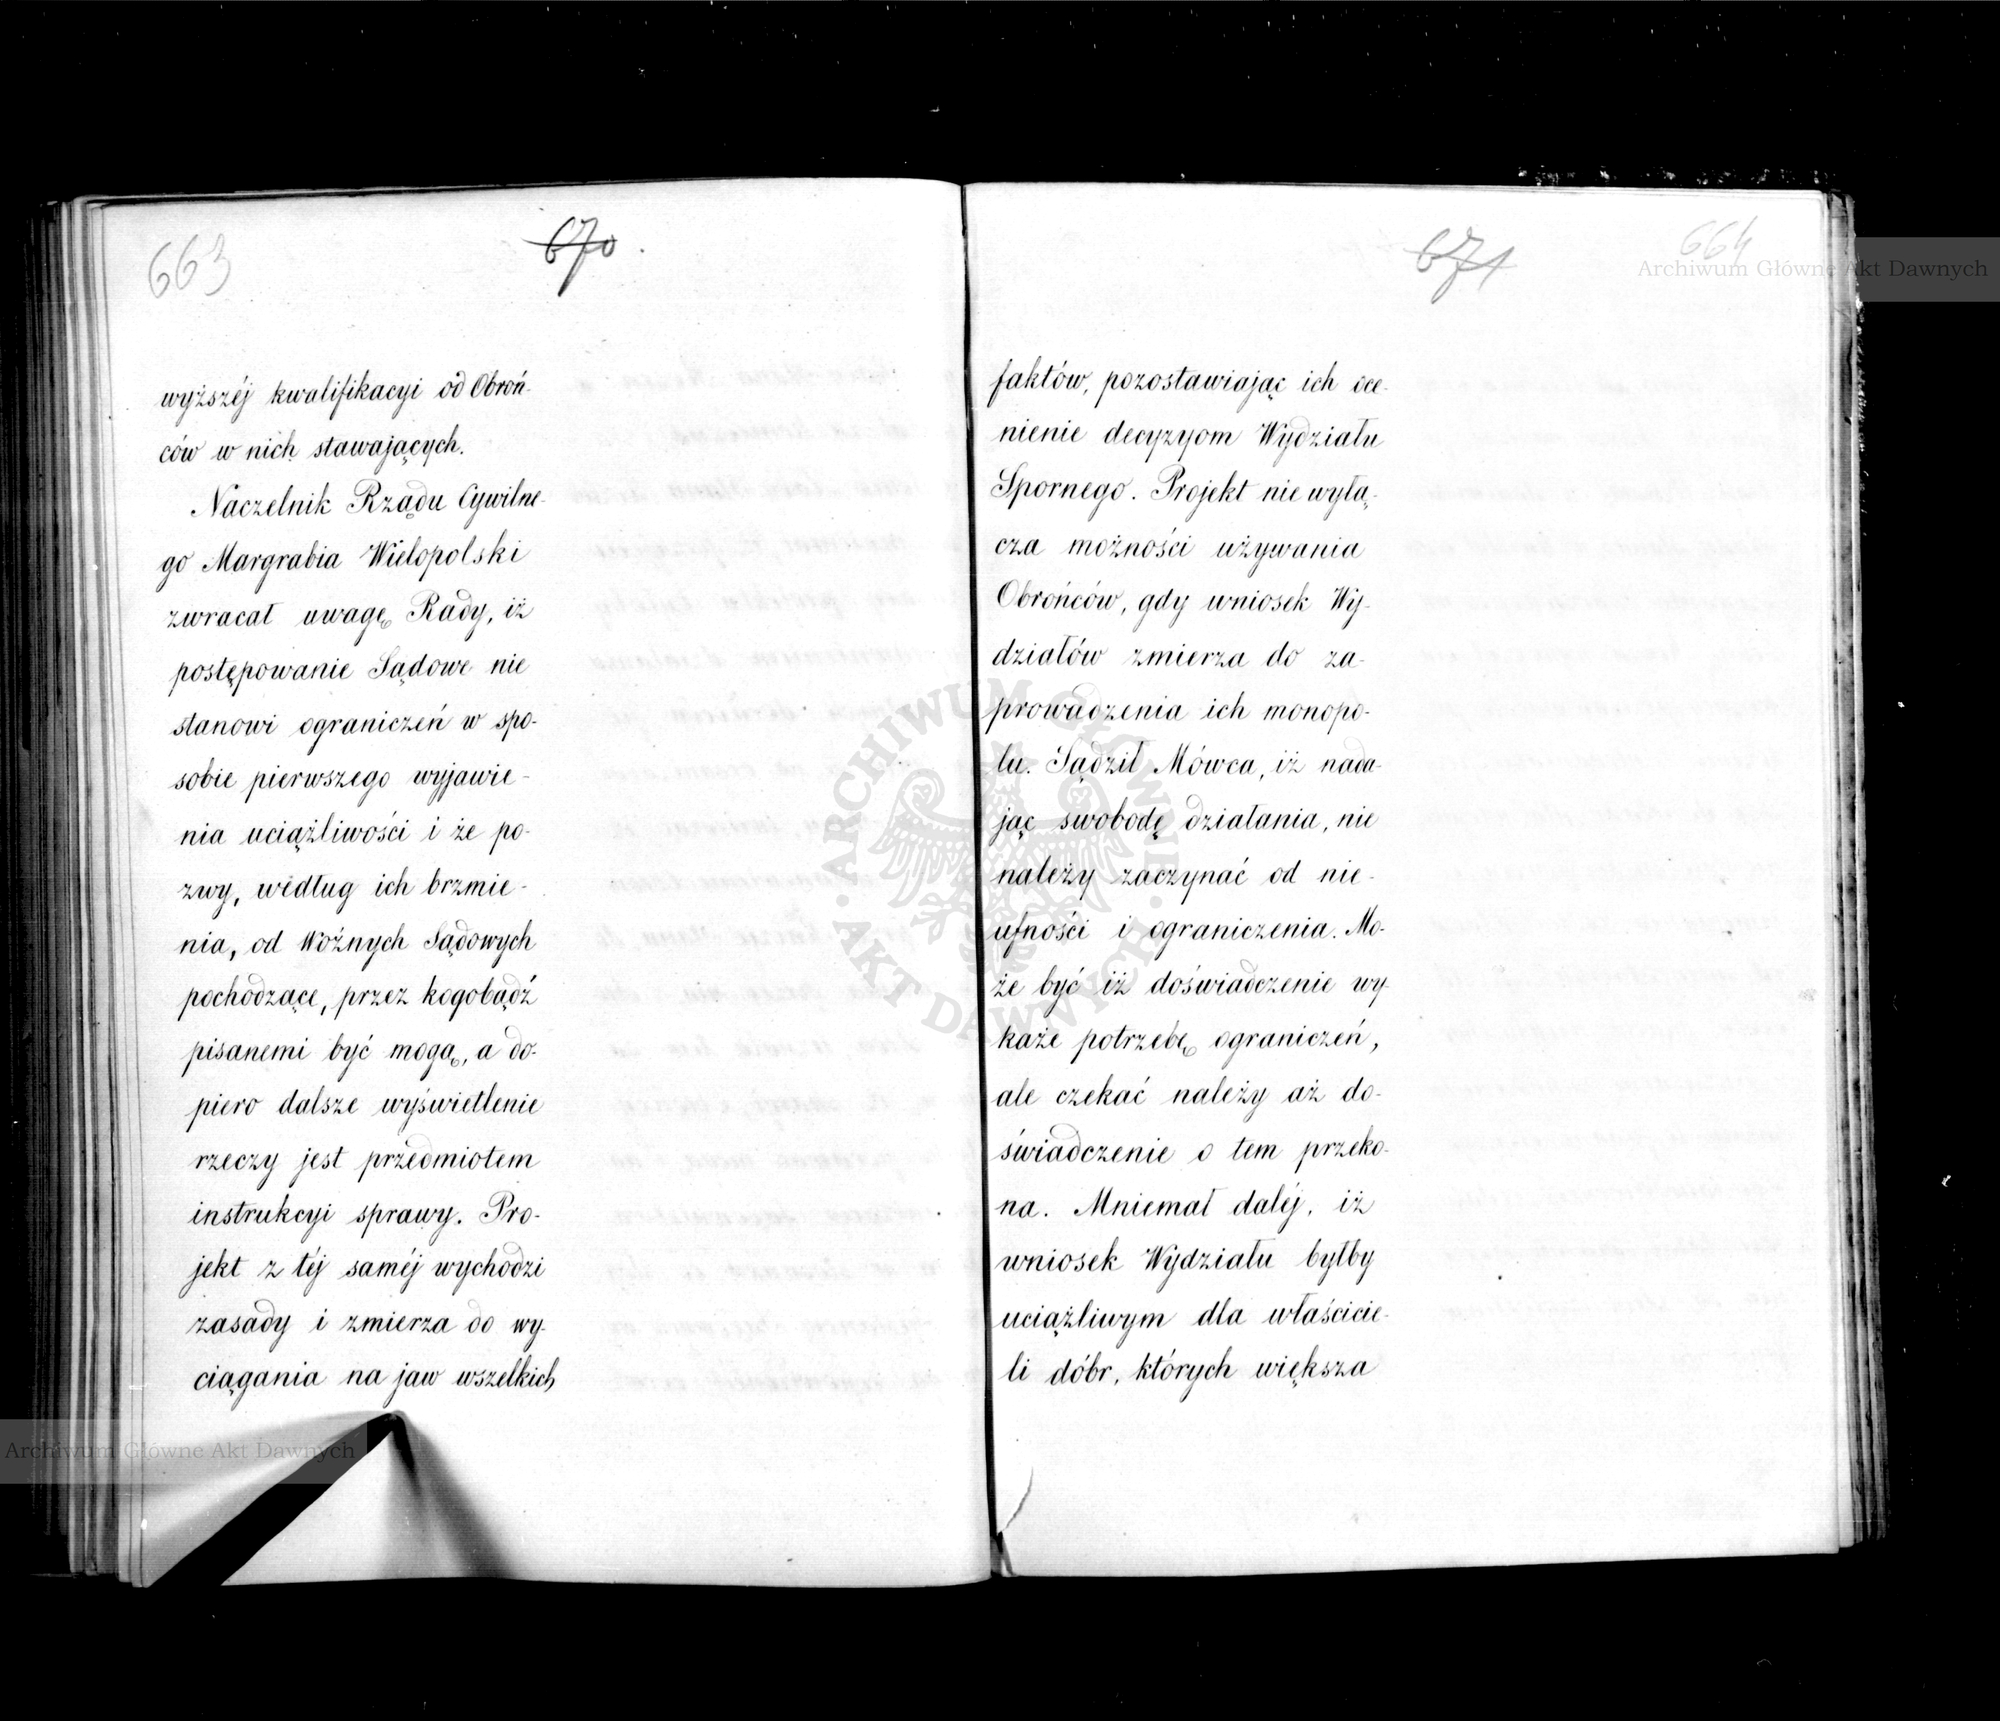 663
670.
wyższéj kwalifikacyi od Obroń-
ców w nich stawających.
Naczelnik Rządu Cywilne-
go Margrabia Wielopolski
zwracał uwagę Rady, iż
postępowanie Sądowe nie
stanowi ograniczeń w spo-
sobie pierwszego wyjawie-
nia uciążliwości i że po-
zwy, według ich brzmie-
nia, od Woźnych Sądowych
pochodzące, przez kogobądź
pisanemi być mogą, a do-
piero dalsze wyświetlenie
rzeczy jest przedmiotem
instrukcyi sprawy. Pro-
jekt z téj saméj wychodzi
zasady i zmierza do wy-
ciągania na jaw wszelkich
671
664
faktów, pozostawiając ich oce-
nienie decyzyom Wydziału
Spornego. Projekt nie wyłą-
cza możności używania
Obrońców, gdy wniosek Wy-
działów zmierza do za-
prowadzenia ich monopo-
lu. Sądził Mówca, iż nada-
jąc swobodę działania, nie
należy zaczynać od nie-
ufności i ograniczenia. Mo-
że być iż doświadczenie wy
każe potrzebę ograniczeń,
ale czekać należy aż do-
świadczenie o tem przeko-
na. Mniemał daléj, iż
wniosek Wydziału byłby
uciążliwym dla właścicie-
li dóbr, których większa
Archiwum Główne Akt Dawnych
Archiwum Główne Akt Dawnych
ARCHIWUM GŁÓWNE
AKT DAWNYCH